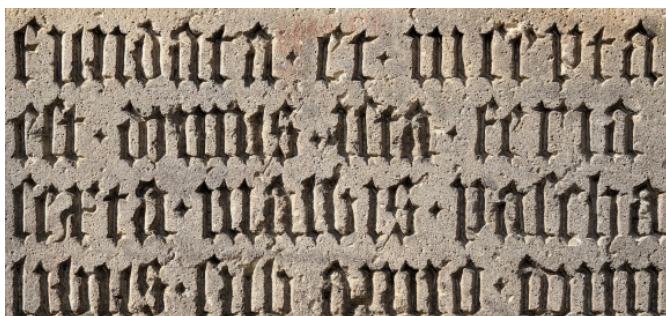 fundata · et · incepta
est · domus · ista · feria
sexta · inalbis · pascha
libus · sub anno ·